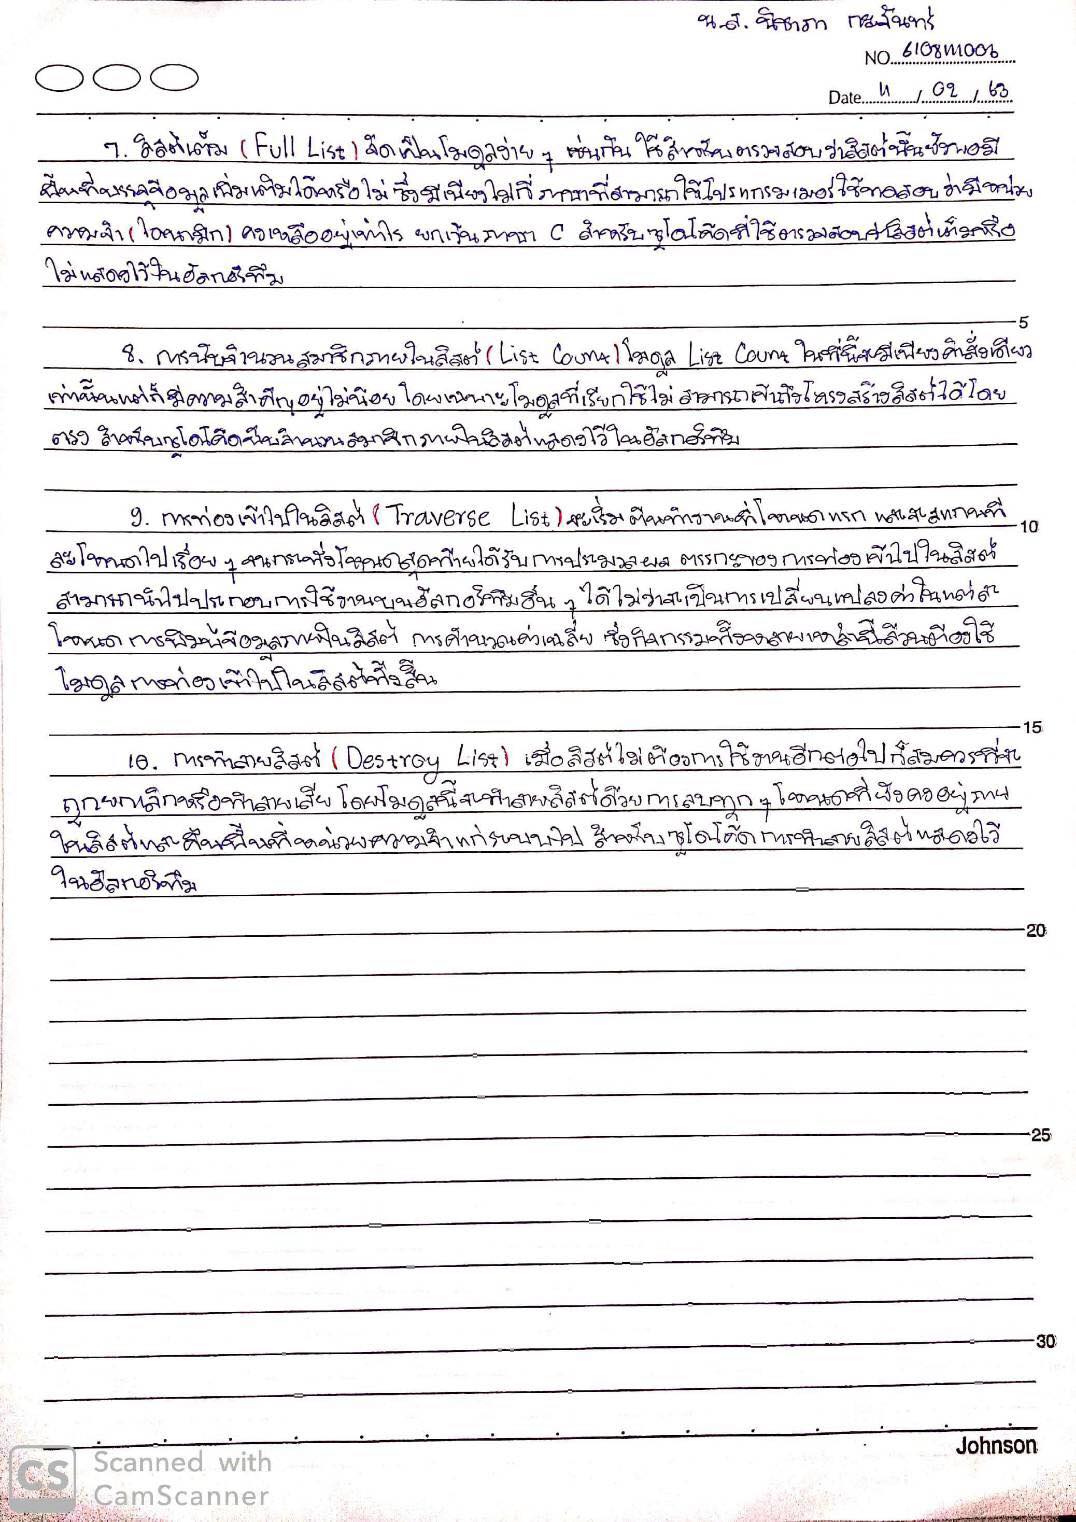 น.ส. นิชาภา กะจันทร์
NO. 6108111006
Date 11 / 02 / 63
7. ลิสต์เต็ม (Full List) จัดเป็นโมดูลง่าย ๆ เช่นกัน ใช้สำหรับตรวจสอบว่าลิสต์นั้นยังพอมี
พื้นที่บรรจุข้อมูลเพิ่มเติมได้หรือไม่ ซึ่งมีเพียงไม่กี่ภาษาที่สามารถให้โปรแกรมเมอร์ใช้ทดสอบว่ามีหน่วย
ความจำ (ไดนามิก) คงเหลืออยู่เท่าไร ยกเว้นภาษา C สำหรับซูโดโค้ดที่ใช้ตรวจสอบว่าลิสต์เต็มหรือ
ไม่แสดงไว้ในอัลกอริทึม
5
8. การนับจำนวนสมาชิกภายในลิสต์ (List Count) โมดูล List Count ในที่นี้จะมีเพียงคำสั่งเดียว
เท่านั้นแต่ก็มีความสำคัญอยู่ไม่น้อย โดยเฉพาะโมดูลที่เรียกใช้ไม่สามารถเข้าถึงโครงสร้างลิสต์ได้โดย
ตรง สำหรับซูโดโค้ดนับจำนวนสมาชิกภายในลิสต์แสดงไว้ในอัลกอริทึม
9. การท่องเข้าไปในลิสต์ (Traverse List) จะเริ่มต้นทำงานที่โหนดแรก และสแกนที
10
ละโหนดไปเรื่อย ๆ จนกระทั่งโหนดสุดท้ายได้รับการประมวลผล ตรรกะของการท่องเข้าไปในลิสต์
สามารถนำไปประกอบการใช้งานบนอัลกอริทึมอื่น ๆ ได้ ไม่ว่าจะเป็นการเปลี่ยนแปลงค่าในแต่ละ
โหนด การพิมพ์ข้อมูลภายในลิสต์ การคำนวณค่าเฉลี่ย ซึ่งกิจกรรมทั้งหลายเหล่านี้ล้วนต้องใช้
โมดูลการท่องเข้าไปในลิสต์ทั้งสิ้น
15
10. การทำลายลิสต์ (Destroy List) เมื่อลิสต์ไม่ต้องการใช้งานอีกต่อไป ก็สมควรที่จะ
ถูกยกเลิกหรือทำลายเสีย โดยโมดูลนี้จะทำลายลิสต์ด้วยการลบทุก ๆ โหนดที่ยังคงอยู่ภาย
ในลิสต์และคืนพื้นที่หน่วยความจำแก่ระบบไป สำหรับซูโดโค้ดการทำลายลิสต์แสดงไว้
ในอัลกอริทึม
20
25
30
Johnson
CS Scanned with
CamScanner